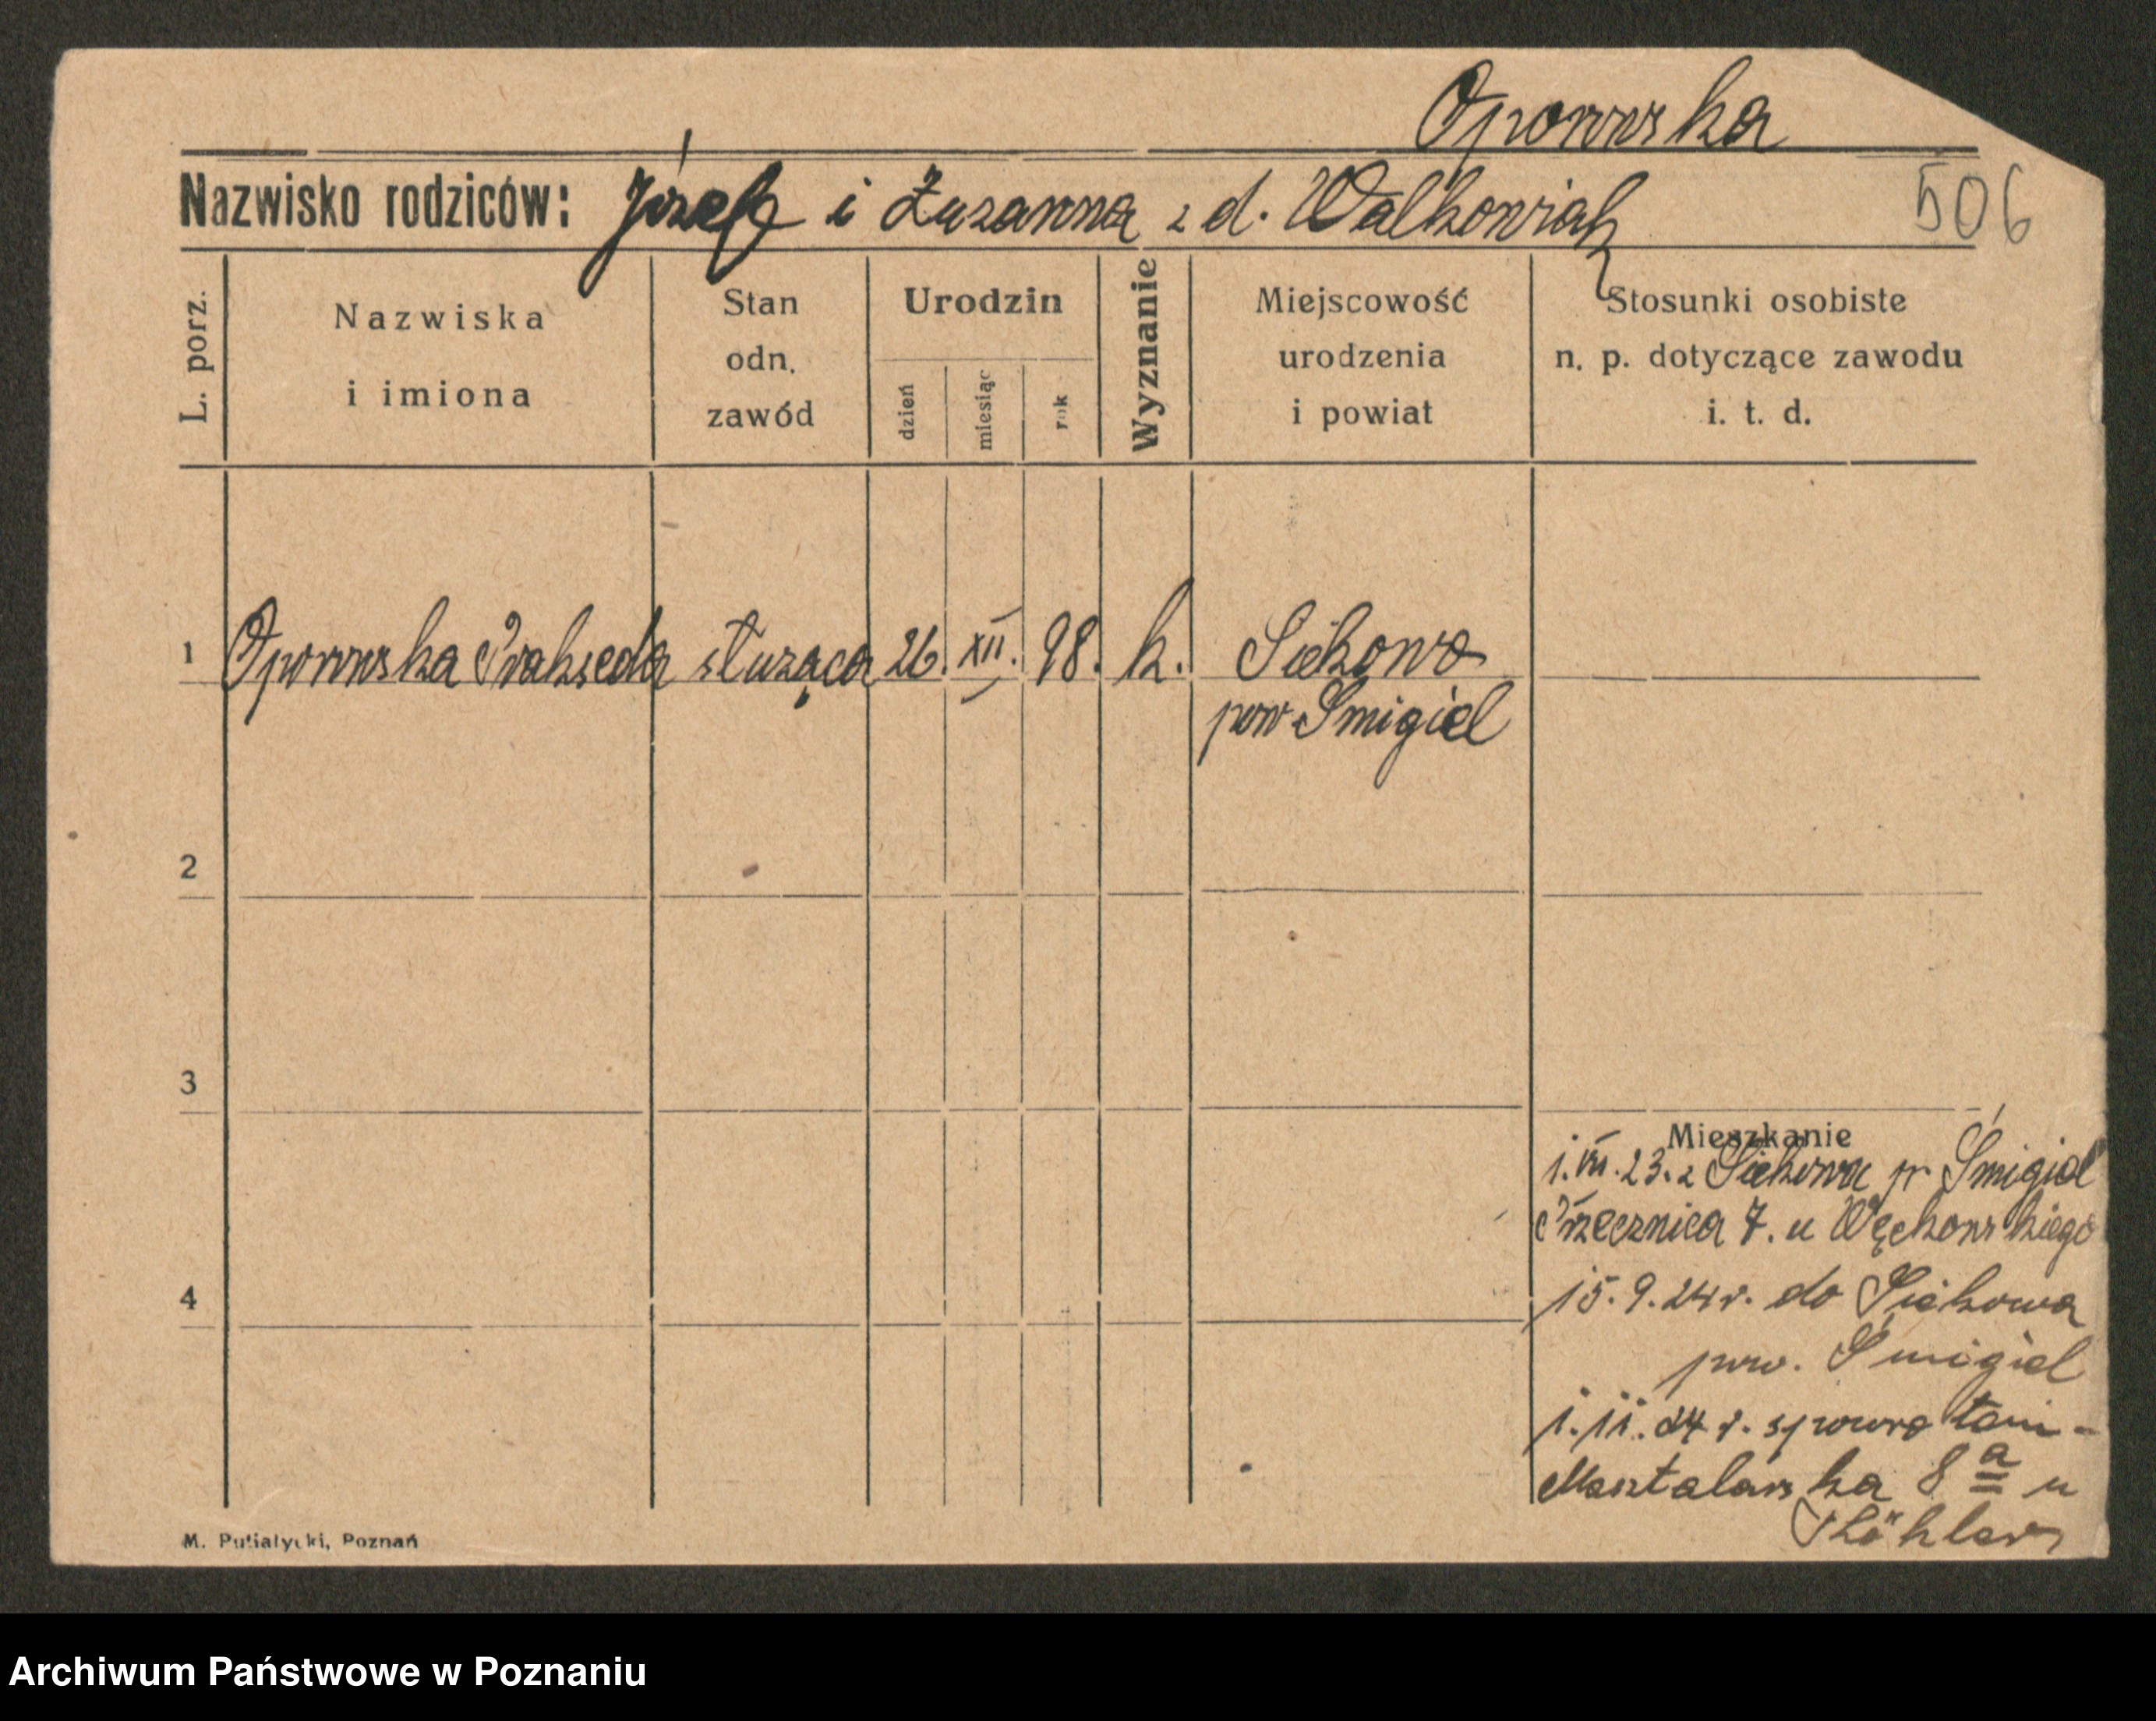 Opowska
Nazwisko rodziców: Józef i Zuzanna z d. Walkowiak 506
L. porz.
Nazwiska
i imiona
Stan
odn.
zawód
Urodzin
dzień
miesiąc
rok
Wyznanie
Miejscowość
urodzenia
i powiat
Stosunki osobiste
n. p. dotyczące zawodu
i. t. d.
1 Opowska Prakseda służąca 26. XII. 98. k. Siekowo
pow Śmigiel
2
3
4
Mieszkanie
1. VII. 23. z Siekowa p. Śmigiel
7. u
15. 9. 24 r. do Siekowa
pow. Śmigiel
1. 11. 24 r. spowrotem -
Masztalarska 8 a u
M. Putiatycki, Poznań
Archiwum Państwowe w Poznaniu